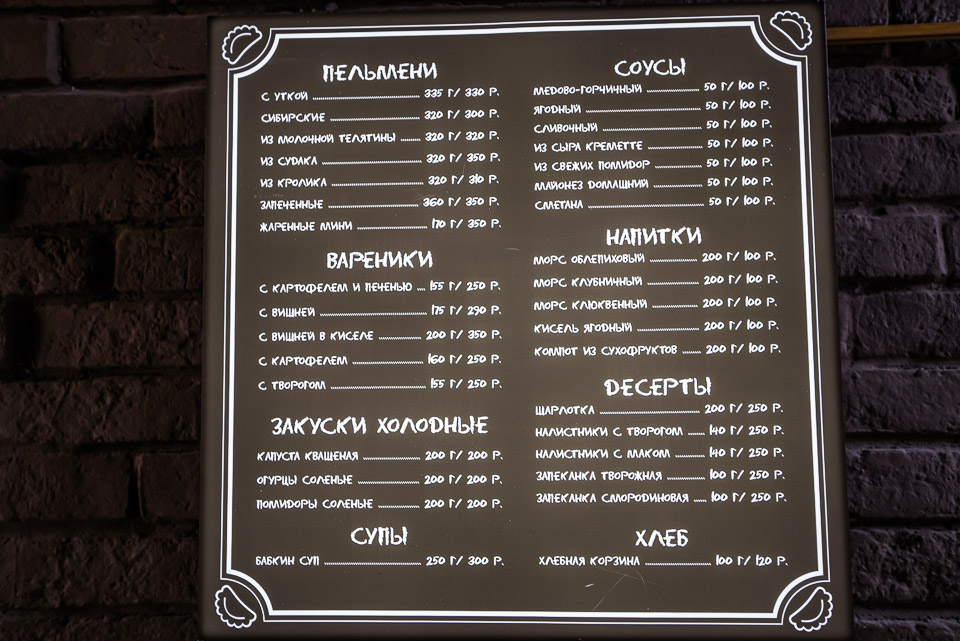 ПЕЛЬМЕНИ
С УТКОЙ 335 Г/ 330 Р.
СИБИРСКИЕ 320 Г/ 300 Р.
ИЗ МОЛОЧНОЙ ТЕЛЯТИНЫ 320 Г/ 320 Р.
ИЗ СУДАКА 320 Г/ 350 Р.
ИЗ КРОЛИКА 320 Г/ 310 Р.
ЗАПЕЧЕННЫЕ 360 Г/ 350 Р.
ЖАРЕННЫЕ МИНИ 170 Г/ 350 Р.
ВАРЕНИКИ
С КАРТОФЕЛЕМ И ПЕЧЕНЬЮ 155 Г/ 250 Р.
С ВИШНЕЙ 175 Г/ 290 Р.
С ВИШНЕЙ В КИСЕЛЕ 200 Г/ 350 Р.
С КАРТОФЕЛЕМ 160 Г/ 250 Р.
С ТВОРОГОМ 155 Г/ 250 Р.
ЗАКУСКИ ХОЛОДНЫЕ
КАПУСТА КВАШЕНАЯ 200 Г/ 200 Р.
ОГУРЦЫ СОЛЕНЫЕ 200 Г/ 200 Р.
ПОМИДОРЫ СОЛЕНЫЕ 200 Г/ 200 Р.
СУПЫ
БАБКИН СУП 250 Г/ 300 Р.
СОУСЫ
МЕДОВО-ГОРЧИЧНЫЙ 50 Г/ 100 Р.
ЯГОДНЫЙ 50 Г/ 100 Р.
СЛИВОЧНЫЙ 50 Г/ 100 Р.
ИЗ СЫРА КРЕМЕТТЕ 50 Г/ 100 Р.
ИЗ СВЕЖИХ ПОМИДОР 50 Г/ 100 Р.
МАЙОНЕЗ ДОМАШНИЙ 50 Г/ 100 Р.
СМЕТАНА 50 Г/ 100 Р.
НАПИТКИ
МОРС ОБЛЕПИХОВЫЙ 200 Г/ 100 Р.
МОРС КЛУБНИЧНЫЙ 200 Г/ 100 Р.
МОРС КЛЮКВЕННЫЙ 200 Г/ 100 Р.
КИСЕЛЬ ЯГОДНЫЙ 200 Г/ 100 Р.
КОМПОТ ИЗ СУХОФРУКТОВ 200 Г/ 100 Р.
ДЕСЕРТЫ
ШАРЛОТКА 200 Г/ 250 Р.
НАЛИСТНИКИ С ТВОРОГОМ 140 Г/ 250 Р.
НАЛИСТНИКИ С МАКОМ 140 Г/ 250 Р.
ЗАПЕКАНКА ТВОРОЖНАЯ 100 Г/ 250 Р.
ЗАПЕКАНКА СМОРОДИНОВАЯ 100 Г/ 250 Р.
ХЛЕБ
ХЛЕБНАЯ КОРЗИНА 100 Г/ 120 Р.